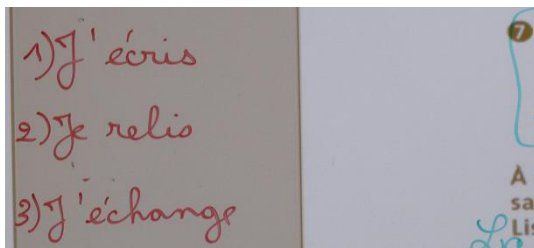 1) J'écris
2) Je relis
3) J'échange
7
A
sa
Lis